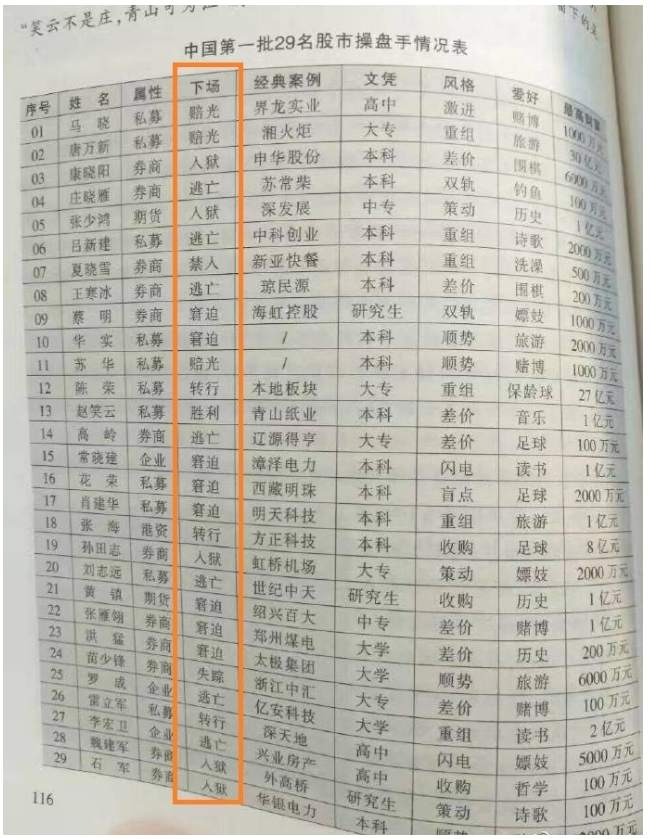 "笑云不是庄,青山可
中国第一批29名股市操盘手情况表
序号 姓 名 属性 下场 经典案例 文凭 风格 爱好 最高财富
01 马 晓 私募 赔光 界龙实业 高中 激进 赌博 1000万元
02 唐万新 私募 赔光 湘火炬 大专 重组 旅游 30亿元
03 康晓阳 券商 入狱 申华股份 本科 差价 围棋 6000万元
04 庄晓雁 券商 逃亡 苏常柴 本科 双轨 钓鱼 100万元
05 张少鸿 期货 入狱 深发展 中专 策动 历史 1亿元
06 吕新建 私募 逃亡 中科创业 本科 重组 诗歌 2000万元
07 夏晓雪 券商 禁入 新亚快餐 本科 重组 洗澡 500万元
08 王寒冰 券商 逃亡 琼民源 本科 差价 围棋 200万元
09 蔡 明 券商 窘迫 海虹控股 研究生 双轨 嫖妓 1000万元
10 华 实 私募 窘迫 / 本科 顺势 旅游 2000万元
11 苏 华 私募 赔光 / 本科 顺势 赌博 1000万元
12 陈 荣 私募 转行 本地板块 大专 重组 保龄球 27亿元
13 赵笑云 私募 胜利 青山纸业 本科 差价 音乐 1亿元
14 高 岭 券商 逃亡 辽源得亨 大专 差价 足球 100万元
15 常晓建 企业 窘迫 漳泽电力 本科 闪电 读书 1亿元
16 花 荣 私募 窘迫 西藏明珠 本科 盲点 足球 2000万元
17 肖建华 私募 窘迫 明天科技 本科 重组 旅游 1亿元
18 张 海 港资 转行 方正科技 本科 收购 足球 8亿元
19 孙田志 券商 入狱 虹桥机场 大专 策动 嫖妓 2000万元
20 刘志远 私募 逃亡 世纪中天 研究生 收购 历史 1亿元
21 黄 镇 期货 窘迫 绍兴百大 中专 差价 赌博 1亿元
22 张雁翎 券商 窘迫 郑州煤电 大学 差价 历史 200万元
23 洪 猛 券商 窘迫 太极集团 大学 顺势 旅游 6000万元
24 苗少锋 券商 失踪 浙江中汇 大专 差价 赌博 100万元
25 罗 成 企业 逃亡 亿安科技 大学 重组 读书 2亿元
26 雷立军 私募 转行 深天地 高中 闪电 嫖妓 5000万元
27 李宏卫 企业 逃亡 兴业房产 高中 收购 哲学 100万元
28 魏建军 券商 入狱 外高桥 研究生 策动 诗歌 100万元
29 石 军 券商 入狱 华银电力 本科
116